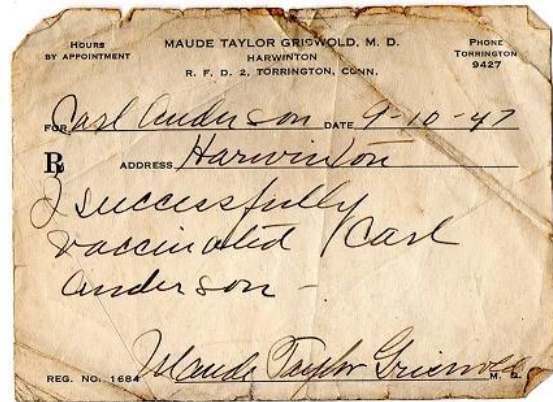 HOURS
BY APPOINTMENT
MAUDE TAYLOR GRISWOLD, M. D.
HARWINTON
R. F. D. 2, TORRINGTON, CONN.
PHONE
TORRINGTON
9427
FOR Carl Anderson DATE 9-10-47
℞ ADDRESS Harwinton
I successfully
vaccinated Carl
Anderson -
REG. NO. 1684 Maude Taylor Griswold M. D.